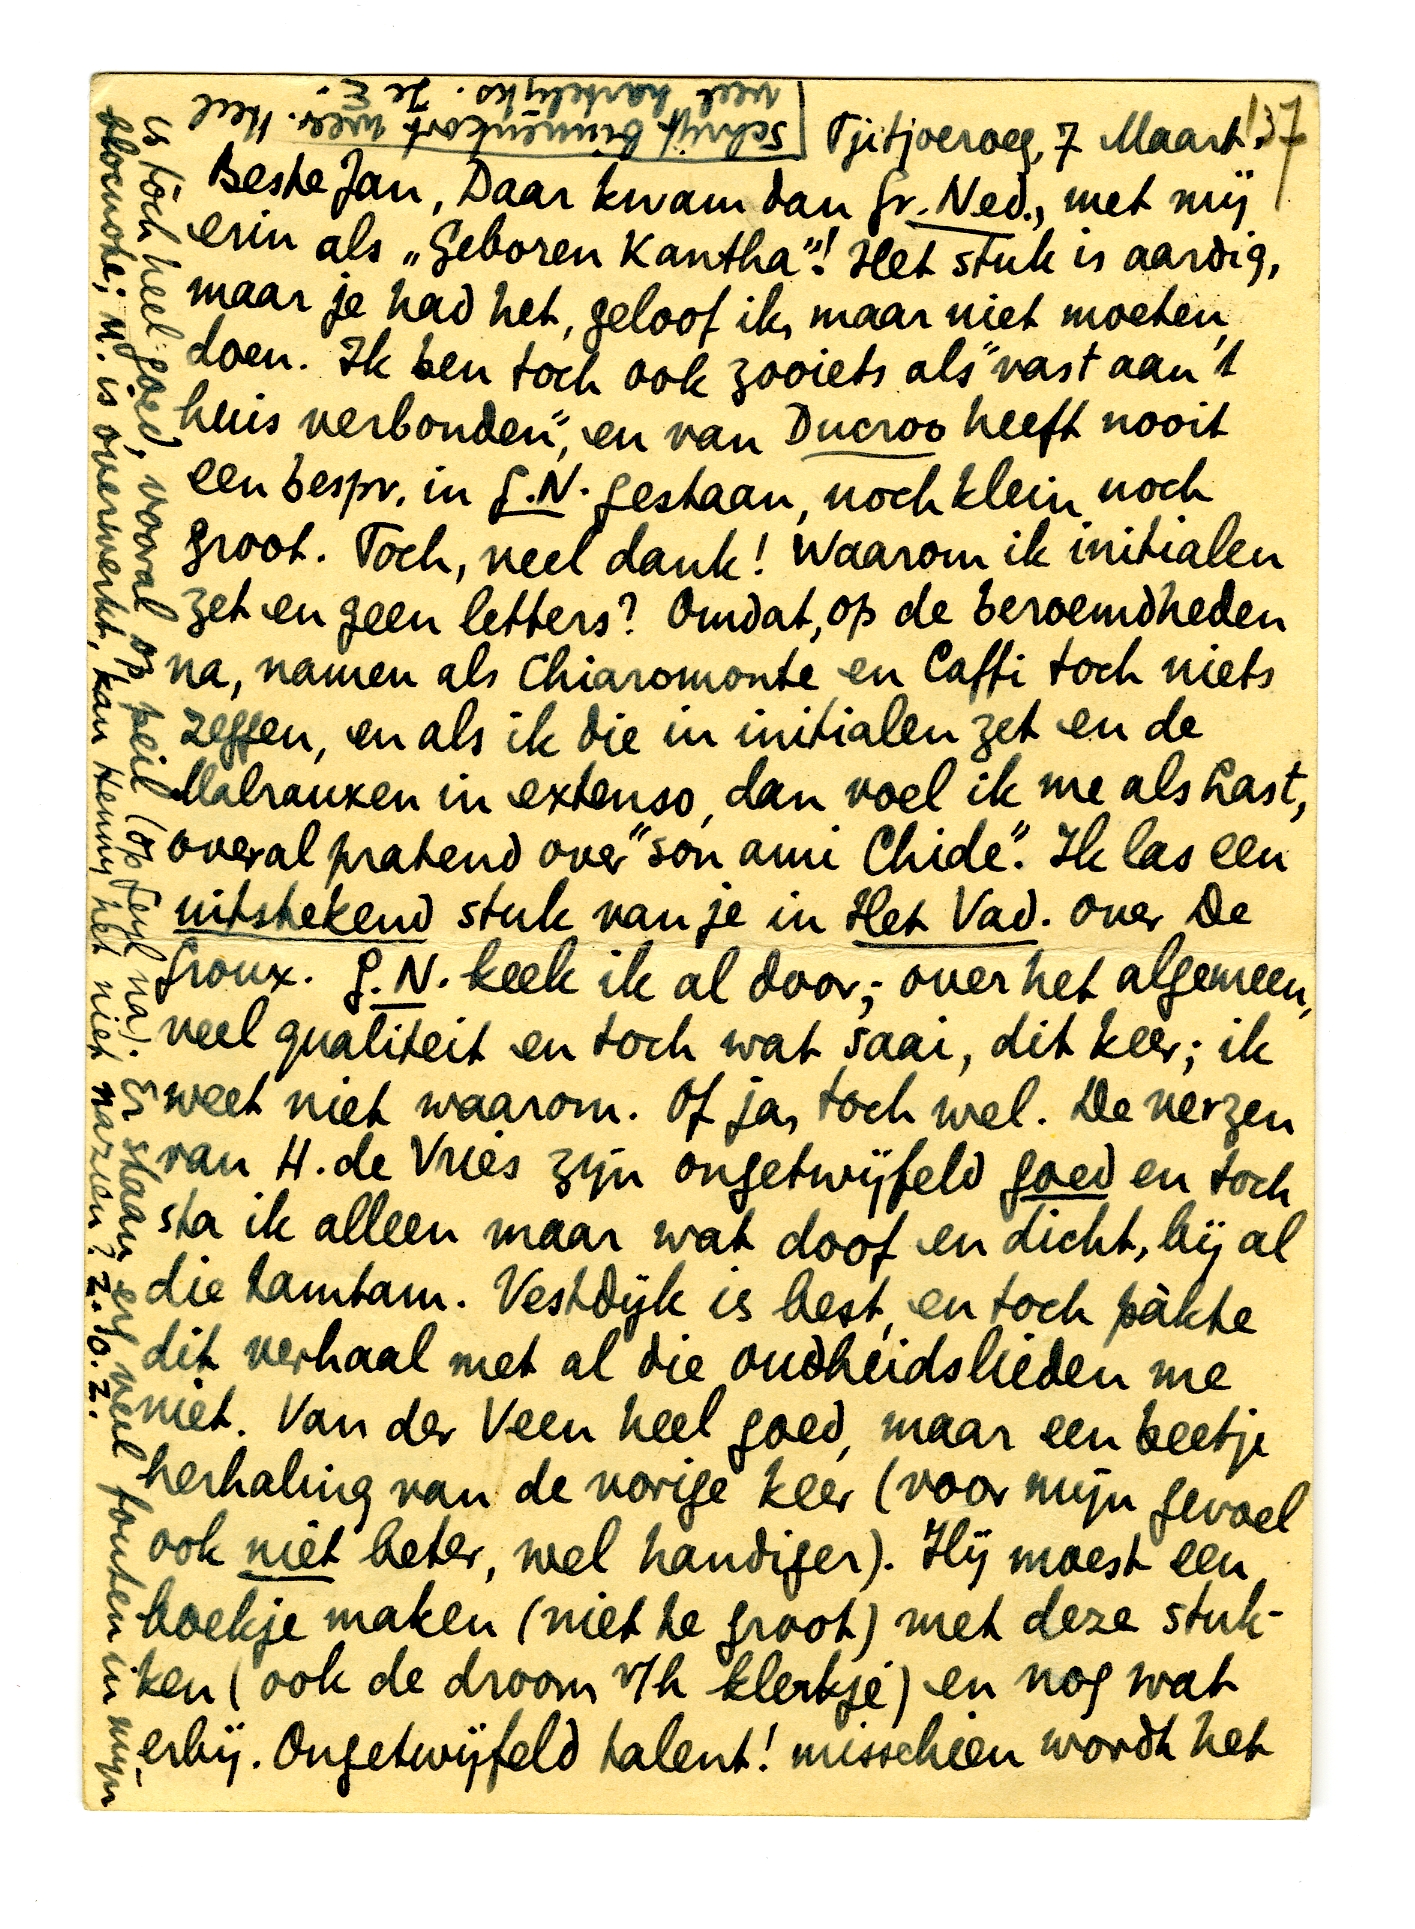 Tjitjoeroeg, 7 Maart '37
Beste Jan, Daar kwam dan Gr. Ned., met mij
erin als „Geboren Kantha"! Het stuk is aardig,
maar je had het, geloof ik, maar niet moeten
doen. Ik ben toch ook zooiets als "vast aan 't
huis verbonden", en van Ducroo heeft nooit
een bespr. in G.N. gestaan, noch klein noch
groot. Toch, veel dank! Waarom ik initialen
zet en geen letters? Omdat, op de beroemdheden
na, namen als Chiaromonte en Caffi toch niets
zeggen, en als ik die in initialen zet en de
Malrauxen in extenso, dan voel ik me als Last,
overal pratend over "son ami Chide". Ik las een
uitstekend stuk van je in Het Vad. over De
Groux. G.N. keek ik al door; over het algemeen,
veel qualiteit en toch wat saai, dit keer; ik
weet niet waarom. Of ja, toch wel. De verzen
van H. de Vries zijn ongetwijfeld goed en toch
sta ik alleen maar wat doof en dicht, bij al
die tamtam. Vestdijk is best, en toch pàkte
dit verhaal met al die oudheidslieden me
niet. Van der Veen heel goed, maar een beetje
herhaling van de vorige keer (voor mijn gevoel
ook niet beter, wel handiger). Hij moest een
boekje maken (niet te groot) met deze stuk-
ken (ook de droom v/h klerkje) en nog wat
erbij. Ongetwijfeld talent! misschien wordt het
is tòch heel goed, vooral op peil (op Feyl na). Er staan erg veel fouten in mijn
blocnote; M. is overwerkt, kan Henny het niet nazien? Z.O.Z.
Schrijf binnenkort weer. Heel
veel hartelijks. Je E.